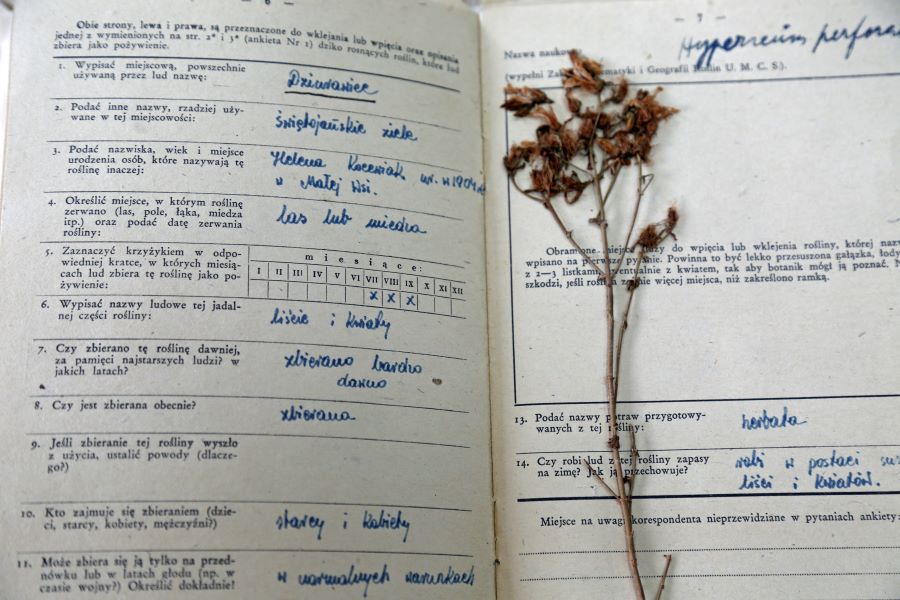 — 6 —
Obie strony, lewa i prawa, są przeznaczone do wklejania lub wpięcia oraz opisania
jednej z wymienionych na str. 2ª i 3ª (ankieta Nr 1) dziko rosnących roślin, które lud
zbiera jako pożywienie.
1. Wypisać miejscową, powszechnie
używaną przez lud nazwę:
Dziurawiec
2. Podać inne nazwy, rzadziej uży-
wane w tej miejscowości:
świętojańskie ziele
3. Podać nazwiska, wiek i miejsce
urodzenia osób, które nazywają tę
roślinę inaczej:
Helena ur. w 1904 r.
w Małej Wsi.
4. Określić miejsce, w którym roślinę
zerwano (las, pole, łąka, miedza
itp.) oraz podać datę zerwania
rośliny:
las lub miedza
5. Zaznaczyć krzyżykiem w odpo-
wiedniej kratce, w których miesią-
cach lud zbiera tę roślinę jako po-
żywienie:
miesiące:
I II III IV V VI VII VIII IX X XI XII
x x x
6. Wypisać nazwy ludowe tej jadal-
nej części rośliny:
liście i kwiaty
7. Czy zbierano tę roślinę dawniej,
za pamięci najstarszych ludzi? w
jakich latach?
zbierano bardzo
dawno
8. Czy jest zbierana obecnie?
zbierana
9. Jeśli zbieranie tej rośliny wyszło
z użycia, ustalić powody (dlacze-
go?)
10. Kto zajmuje się zbieraniem (dzie-
ci, starcy, kobiety, mężczyźni?)
starcy i kobiety
11. Może zbiera się ją tylko na przed-
nówku lub w latach głodu (np. w
czasie wojny?) Określić dokładnie!
w normalnych warunkach
— 7 —
Nazwa naukowa
Hypericum perfora
(wypełni Zakł. i Geografii Roślin U. M. C. S.).
Obramone miejsce służy do wpięcia lub wklejenia rośliny, której nazw
wpisano na pierwszej stronie. Powinna to być lekko przesuszona gałązka, łody
z 2—3 listkami, ewentualnie z kwiatem, tak aby botanik mógł ją poznać. N
szkodzi, jeśli roślina zajmie więcej miejsca, niż zakreślono ramką.
13. Podać nazwy potraw przygotowy-
wanych z tej rośliny:
herbata
14. Czy robi lud z tej rośliny zapasy
na zimę? Jak ją przechowuje?
robi w postaci sus
liści i kwiatów.
Miejsce na uwagi korespondenta nieprzewidziane w pytaniach ankiety: